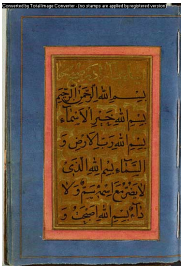 Converted by Total Image Converter - (no stamps are applied by registered version)
بسم الله الرحمن الرحيم
بسم الله خير الاسماء
بسم الله رب الارض و
السماء بسم الله الذى
لا يضر مع اسمه سم ولا
داء بسم الله اصبحت و